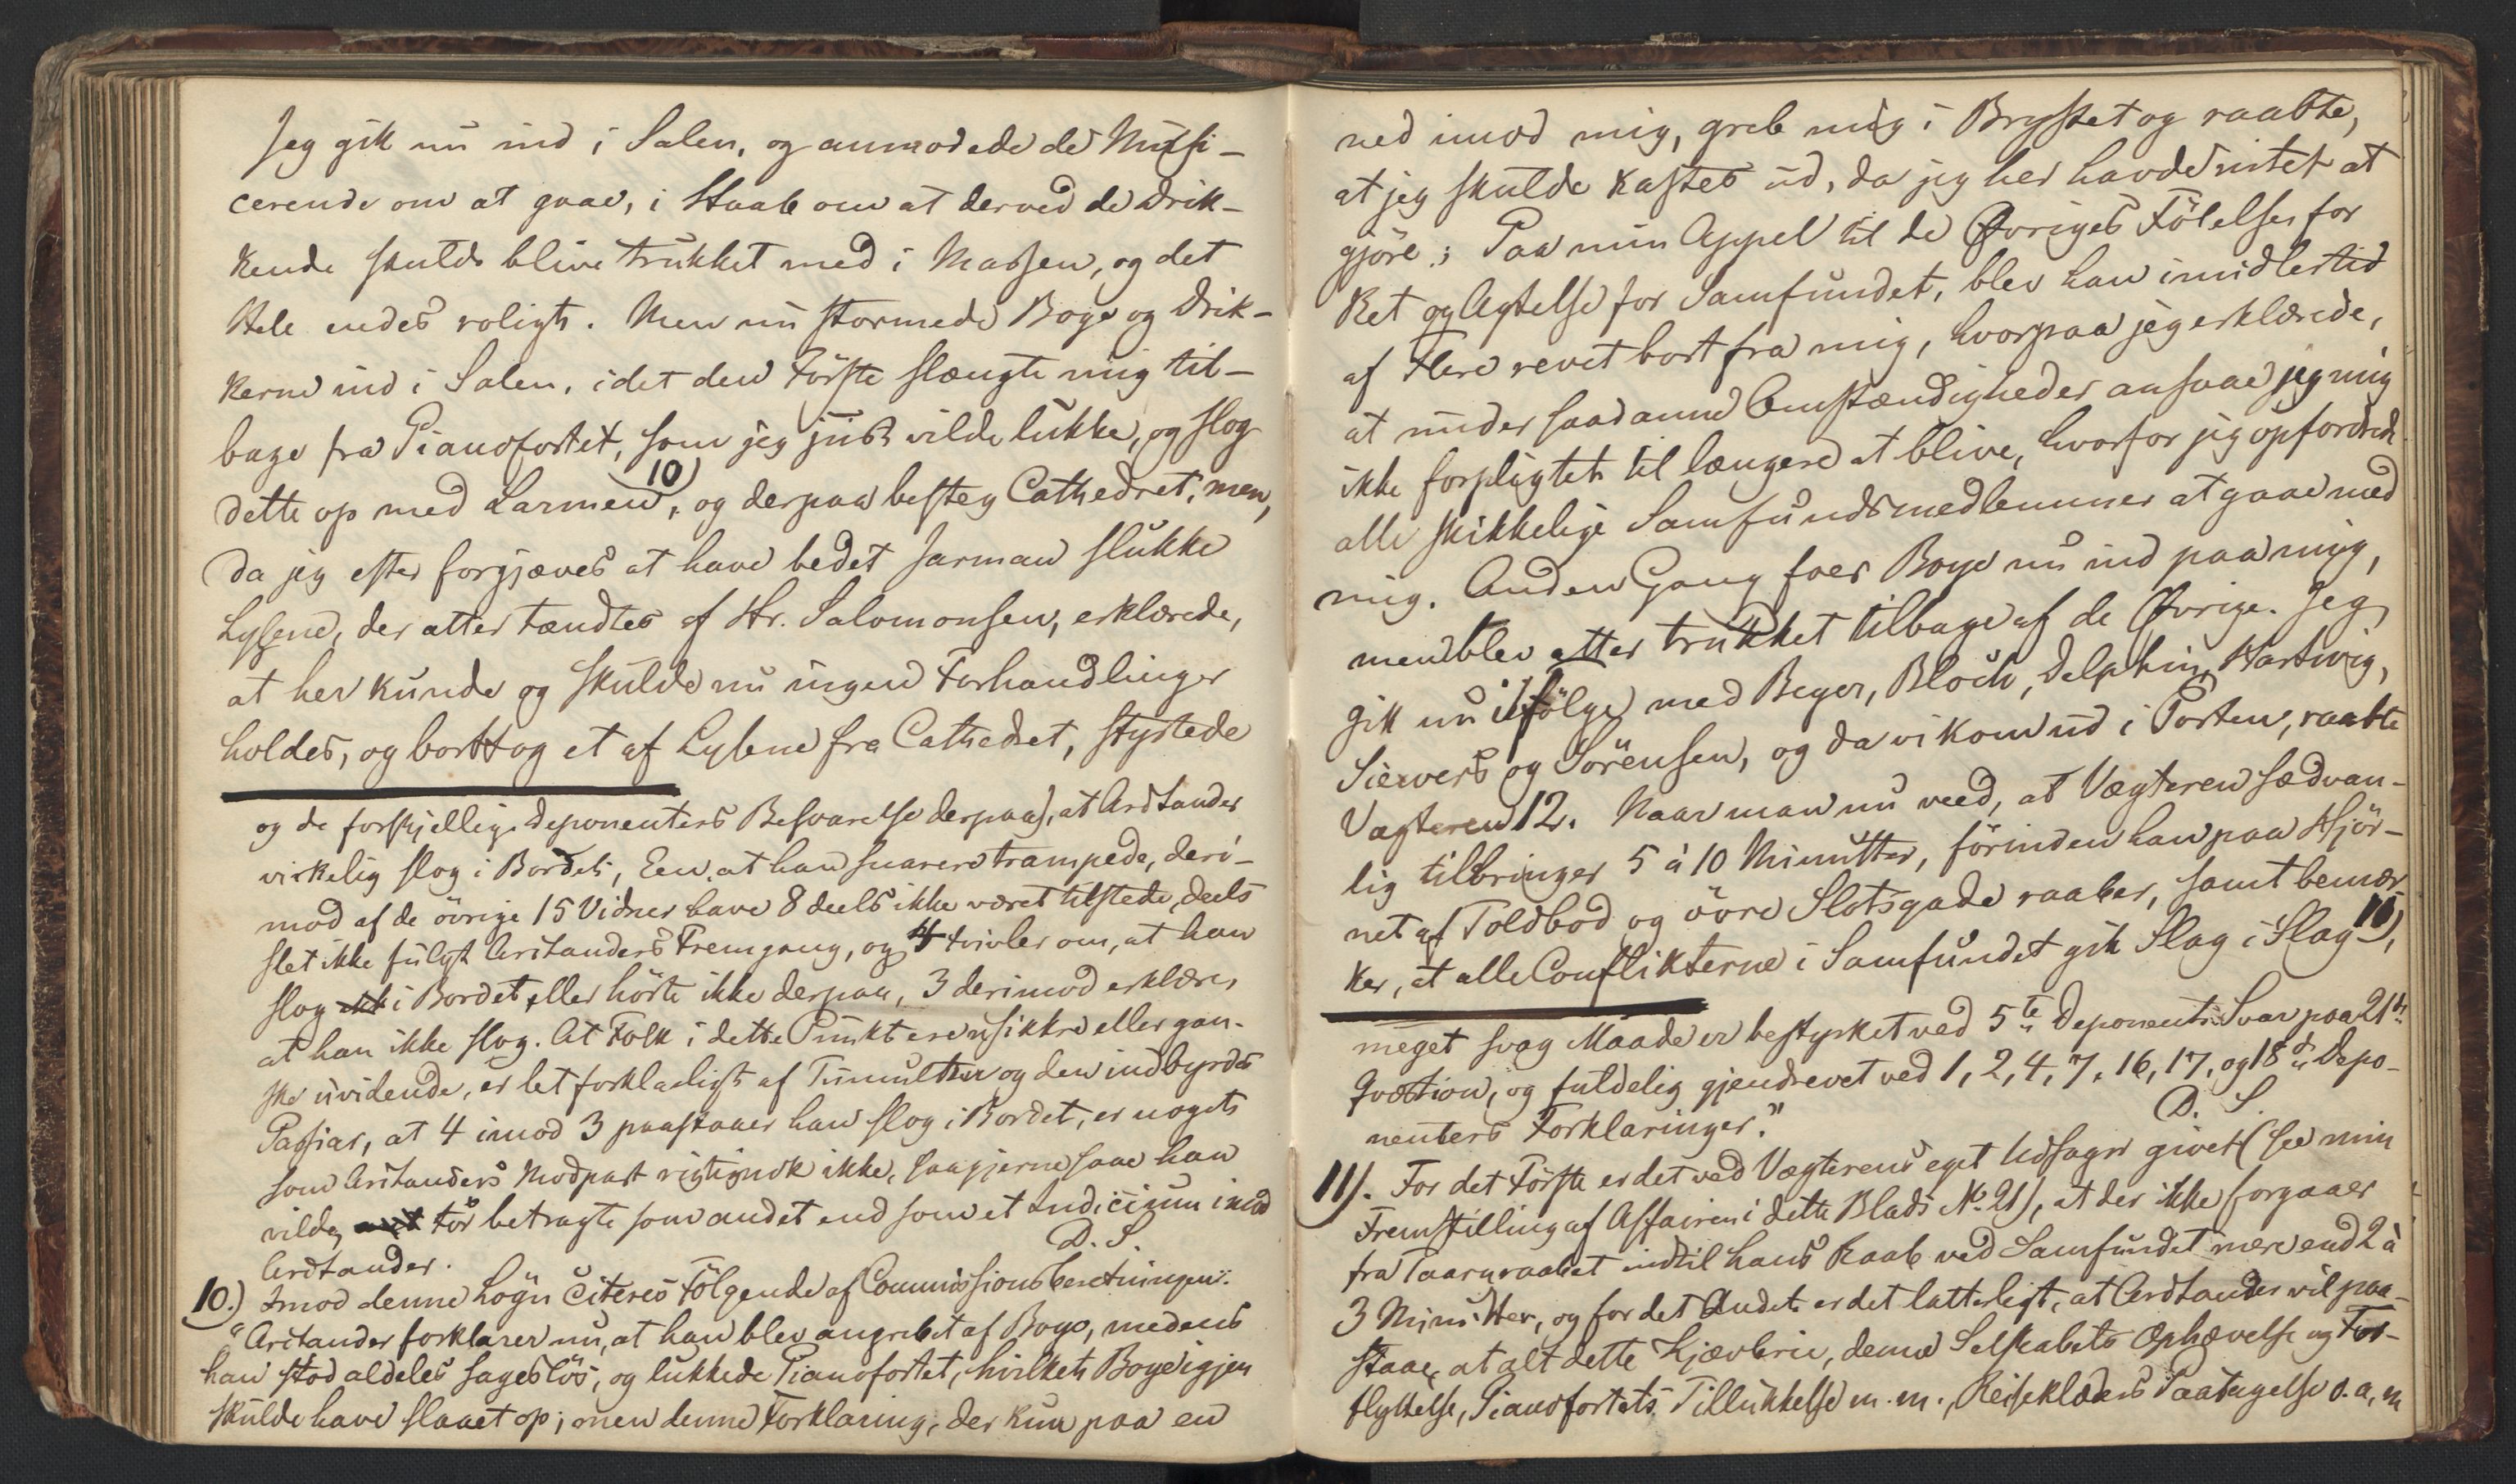 Jeg gik nu ind i Salen, og anmodede de Musi-
cerende om at gaae, i Haab om at derved de Drik-
kende skulde blive trukket med i Massen, og det
Hele endes roligt. Men nu stormede Boye og Drik-
kerne ind i Salen, idet den Förste slængte mig til-
bage fra Pianofortet, som jeg just vilde lukke, og slog
dette op med Larmen 10), og derpaa besteg Cathedret, men,
da jeg efter forgjæves at have bedet Jarman slukke
Lysene, der atter tændtes af Hr. Salomonsen, erklærede,
at her kunde og skulde nu ingen Forhandlinger
holdes, og borttog et af Lysene fra Cathedret, styrtede
og de forskjellige Deponenters Besvarelse derpaa), at Aristander
virkelig slog i Bordet, Een, at han snarere trampede, deri-
mod af de övrige 15 Vidner have 8 deels ikke været tilstede, deels
slet ikke fulgt Aristanders Fremgang, og 4 tvivler om, at han
slog i Bordet eller hörte ikke derpaa, 3 derimod erklærer
at han ikke slog. At Folk i dette Punkt ere usikkre eller gan-
ske uvidende, er let forklarligt af Tumulten og den indbyrdes
Passiar, at 4 imod 3 paastaaer han slog i Bordet, er noget
som Aristanders Modpart rigtignok ikke, saa gjerne saae han
vilde, tör betragte som andet end som et Indicium imod
Aristander. D. S.
10.) Imod denne Lögn citeres Fölgende af Commissionsberetningen:
"Aristander forklarer nu, at han blev angrebet af Boye, medens
han stod aldeles sageslös, og lukkede Pianofortet, hvilket Boye igjen
skulde have slaaet op; men denne Forklaring, der kun paa en
ned imod mig, greb mig i Brystet og raabte,
at jeg skulde kastes ud, da jeg her havde intet at
gjöre; Paa min Appel til de Øvriges Fölelse for
Ret og Agtelse for Samfundet, blev han imidlertid
af Flere revet bort fra mig, hvorpaa jeg erklærede,
at under saadanne Omstændigheder ansaae jeg mig
ikke forpligtet til længere at blive, hvorfor jeg opfordrede
alle skikkelige Samfundsmedlemmer at gaae med
mig. Anden Gang foer Boye nu ind paa mig,
men blev atter trukket tilbage af de Øvrige. Jeg
gik nu i fölge med Beyer, Bloch, Delphin, Hartvig,
Siewers og Sörensen, og da vi kom ud i Porten, raabte
Vægteren 12. Naar man nu veed, at Vægteren sædvan-
lig tilbringer 5 à 10 Minutter, förinden han paa Hjör-
net af Toldbod og övre Slotsgade raaber, samt bemær-
ker, at alle Conflikterne i Samfundet gik Slag i Slag 11),
meget svag Maade er bestyrket ved 5te Deponents Svar paa 21de
Qvæstion, og fuldelig gjendrevet ved 1, 2, 4, 7, 16, 17, og 18de Depo-
nenters Forklaringer." D. S.
11). For det Förste er det ved Vægterens eget Udsagn givet (see min
Fremstilling af Affairen i dette Blads No 21), at der ikke forgaaer
fra Taarnraabet indtil hans Raab ved Samfundet mere end 2 à
3 Minutter, og for det Andet er det latterligt, at Aristander vil paa-
staae, at alt dette Kjævlerie, denne Selskabets Ophævelse og For-
flyttelse, Pianofortets Tillukkelse m. m., Reiseklæders Paatagelse o. a. m